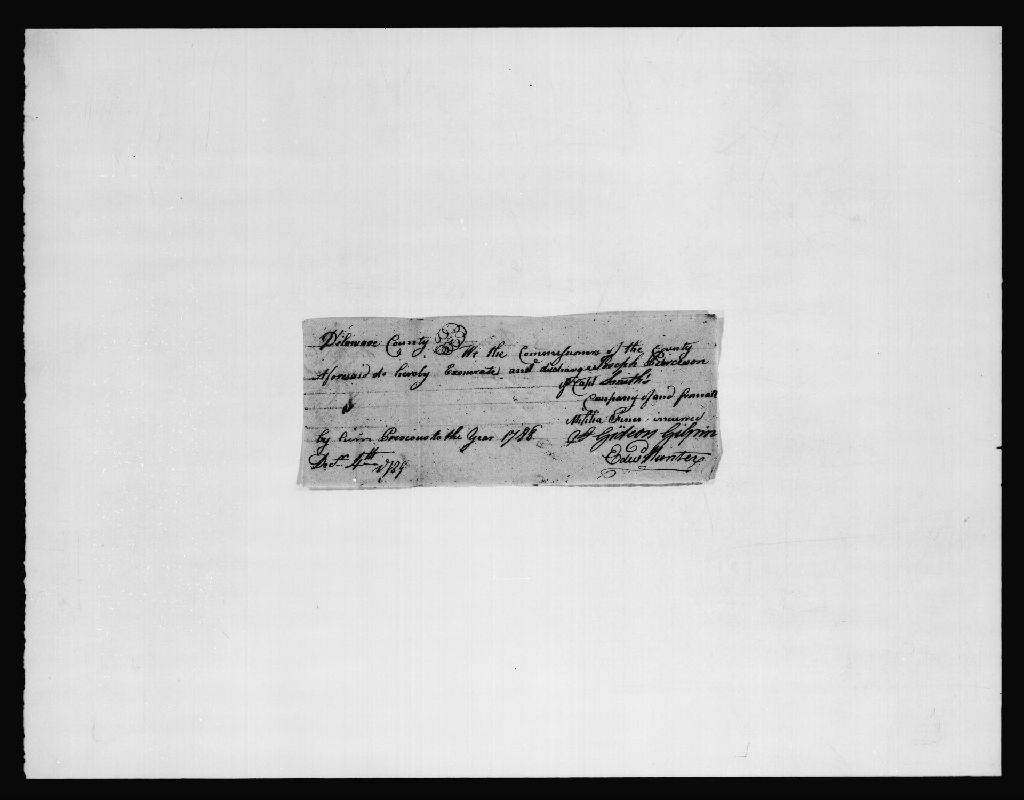 Delaware County SS We the Commissioners of the County
Aforesaid do hereby Exonerate and discharge Joseph Pierceson
of Capt Smith's
Company of and from all
Militia Fines incurred
by him Previous to the Year 1788
Decr 4th 1789
Gideon Gilpin
Edwd Hunter